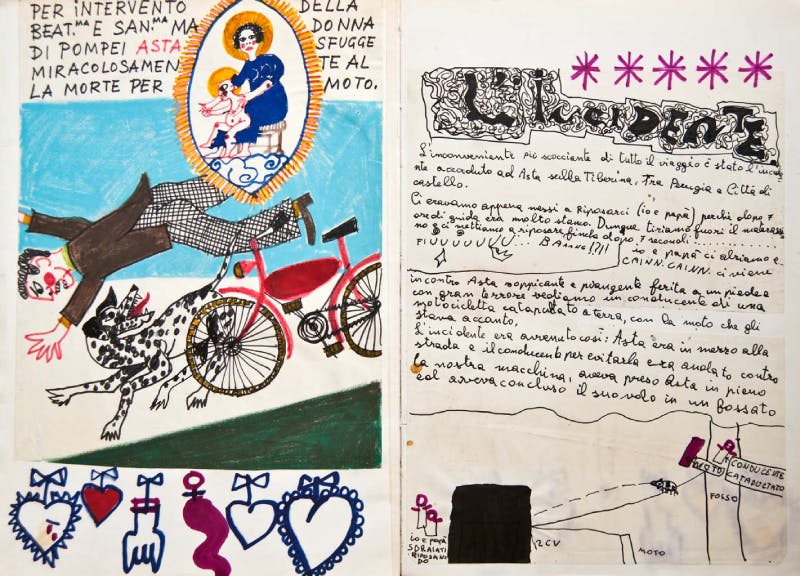 PER INTERVENTO DELLA
BEAT.MA E SAN.MA MADONNA
DI POMPEI ASTA SFUGGE
MIRACOLOSAMENTE AL
LA MORTE PER MOTO.
L'INCIDENTE.
L'inconveniente più scocciante di tutto il viaggio è stato l'incide
nte accaduto ad Asta sulla Tiberina, Tra Perugia e Città di
castello.
Ci eravamo appena messi a Riposarci (io e papà) perché dopo 7
ore di guida era molto stanco. Dunque tiriamo fuori il materassi
no e ci mettiamo a riposare finché dopo 7 secondi
FIUUUUUU BANNG!?!!
io e papà ci alziamo e
CAINN. CAINN. ci viene
incontro Asta zoppicante e piangente ferita a un piede e
con gran terrore vediamo un conducente di una
motocicletta catapultato a terra, con la moto che gli
stava accanto,
L'incidente era avvenuto così: Asta era in mezzo alla
strada e il conducente per evitarla era andato contro
la nostra macchina, aveva preso Asta in pieno
ed aveva concluso il suo volo in un fossato
MOTO
CONDUCENTE
CATAPULTATO
FOSSO
IO E PAPÀ
SDRAIATI
RIPOSAN
DO
2CV
MOTO